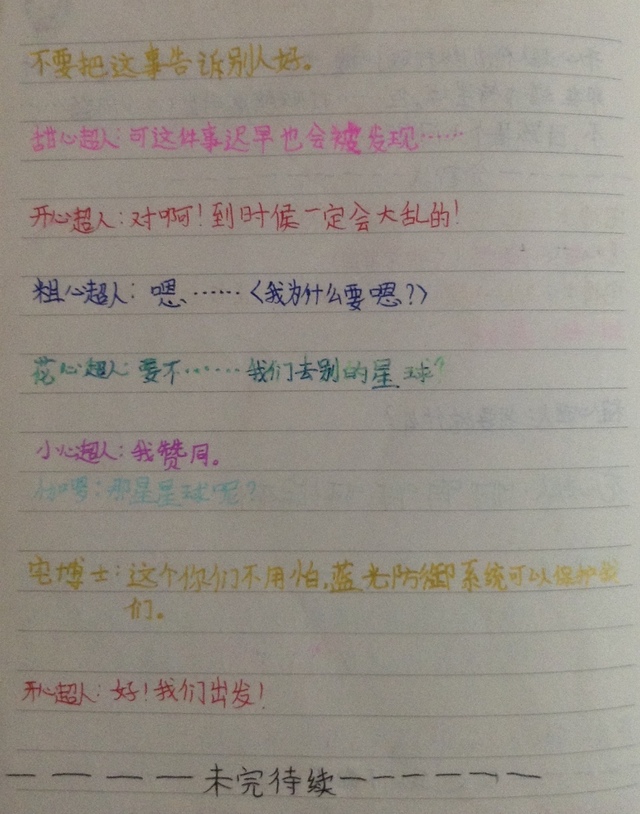 不要把这事告诉别人好。
甜心超人：可这件事迟早也会被发现……
开心超人：对啊！到时候一定会大乱的！
粗心超人：嗯……〈我为什么要嗯？〉
花心超人：要不……我们去别的星球？
小心超人：我赞同。
伽罗：那星星球呢？
宅博士：这个你们不用怕，蓝光防御系统可以保护我
们。
开心超人：好！我们出发！
－－－－－未完待续－－－－－－